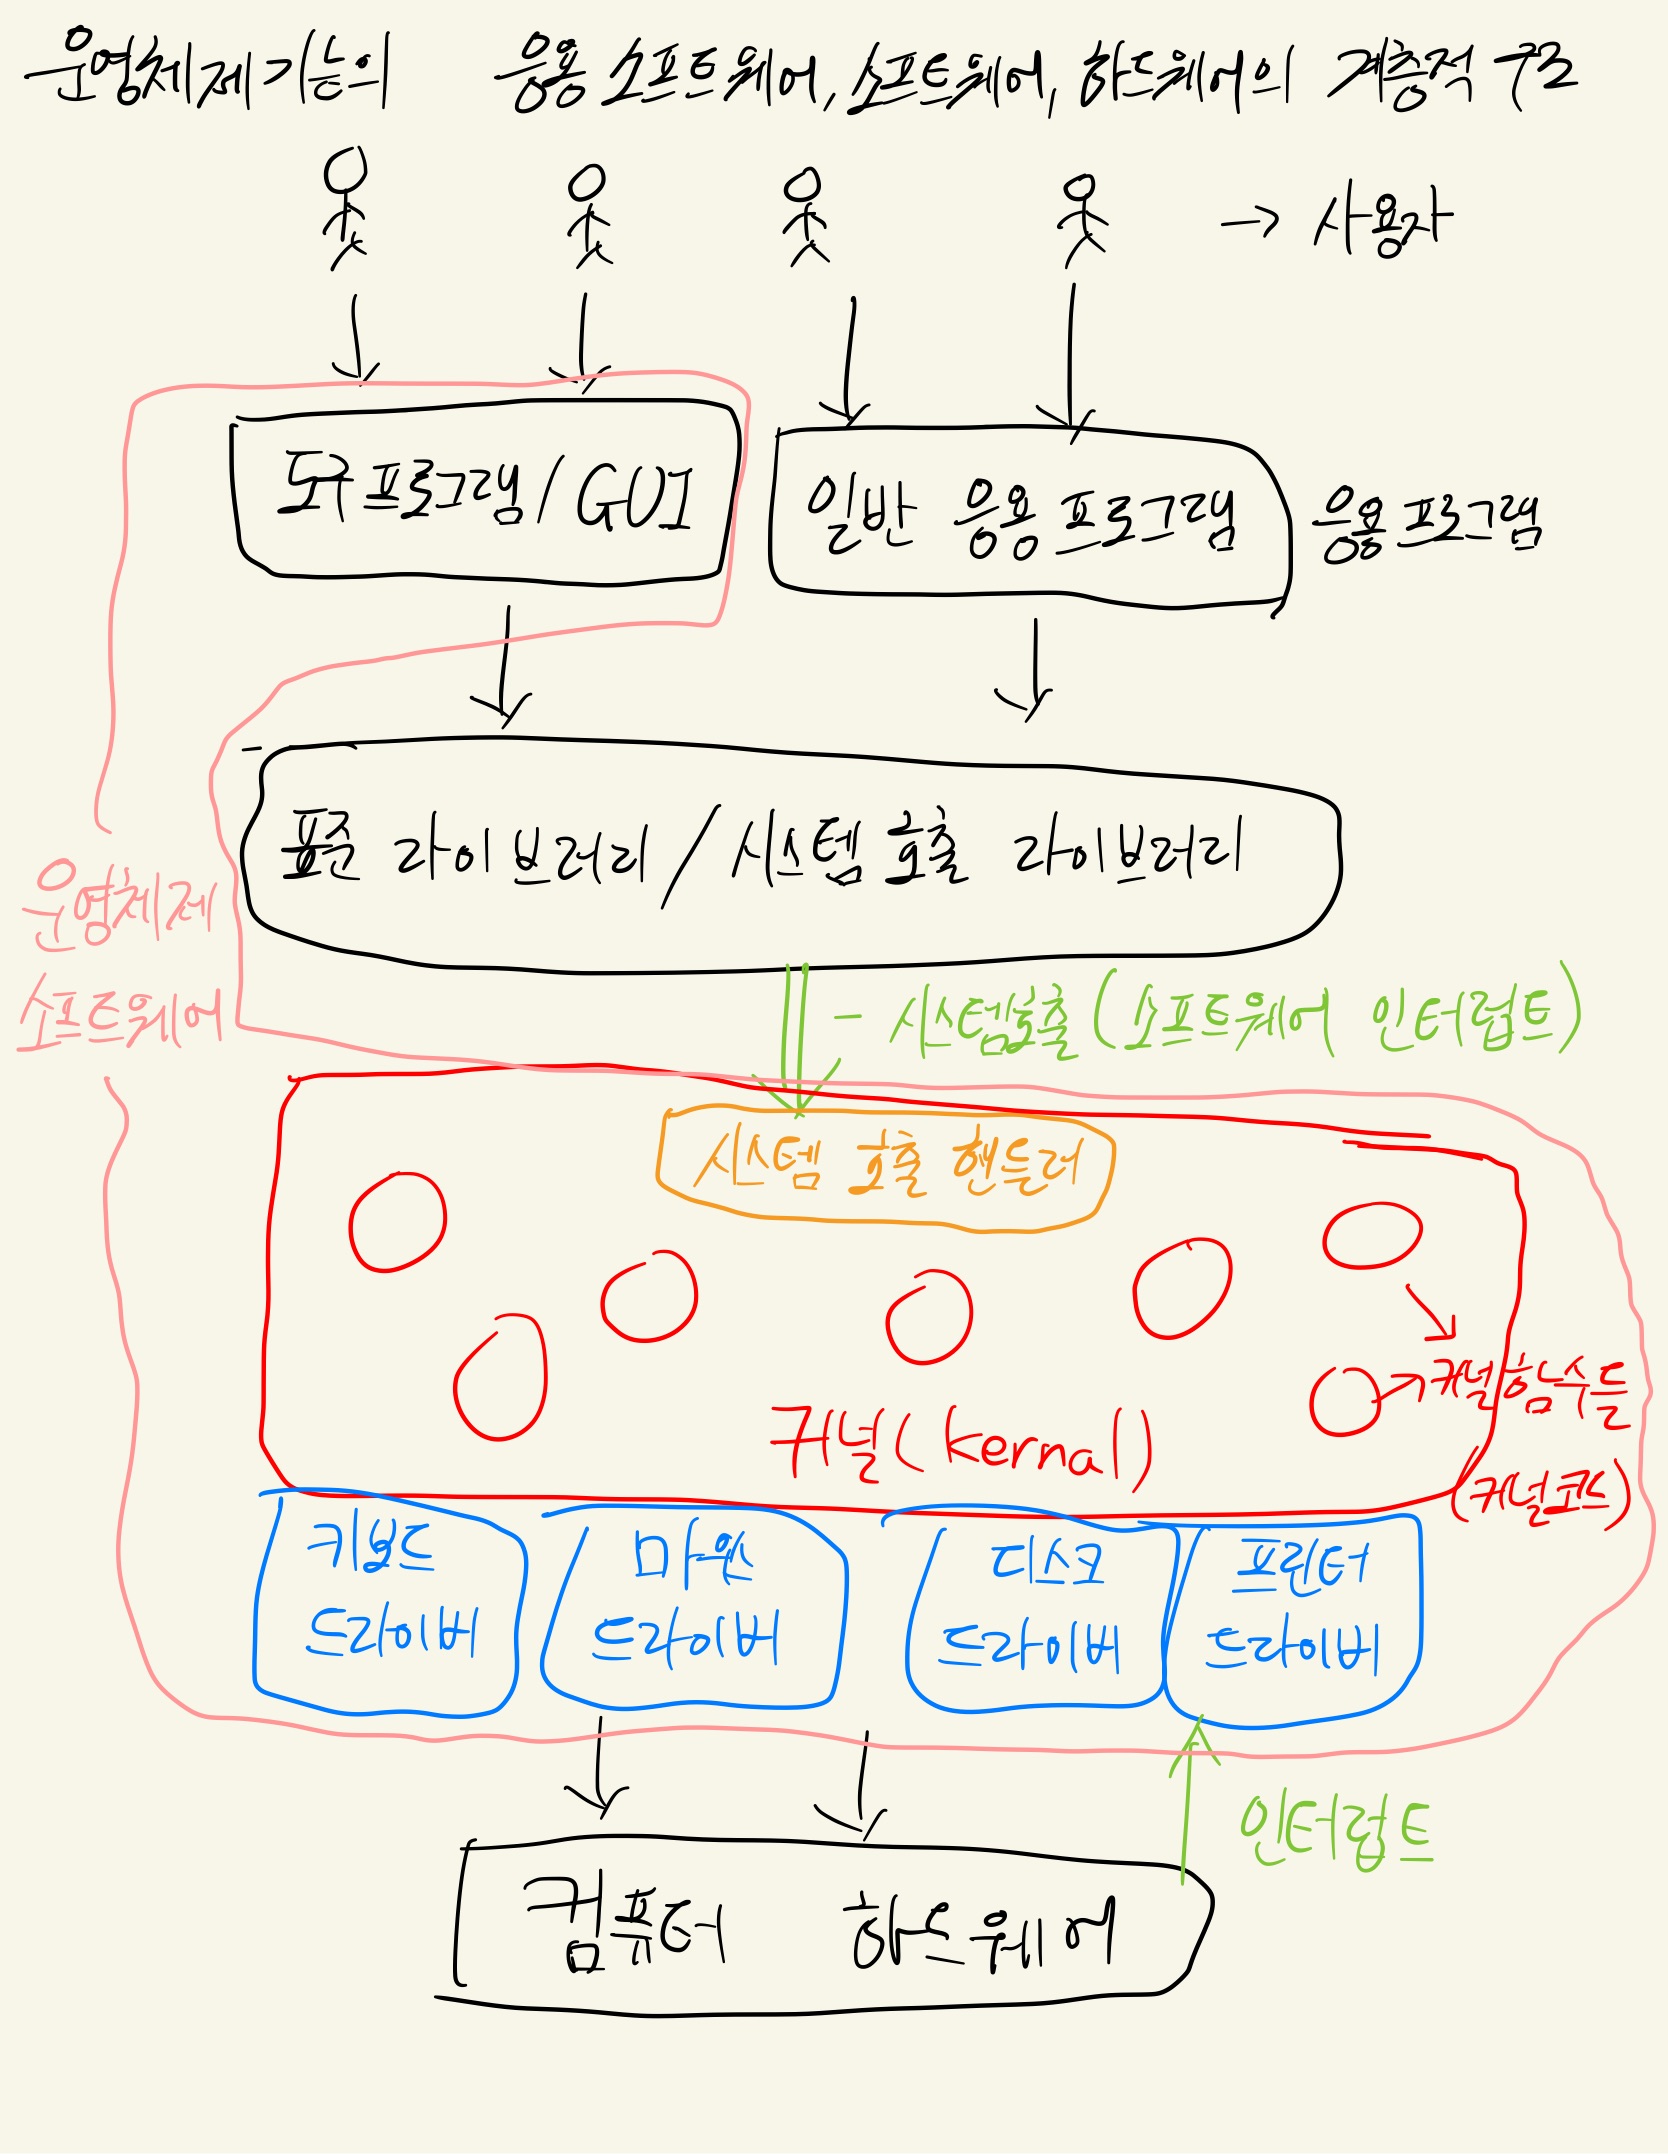 운영체제 기능의 응용 소프트웨어, 소프트웨어, 하드웨어의 계층적 구조
→ 사용자
도구 프로그램 / GUI
일반 응용 프로그램
응용 프로그램
표준 라이브러리 / 시스템 호출 라이브러리
운영체제
소프트웨어
- 시스템호출 (소프트웨어 인터럽트)
시스템 호출 핸들러
커널 함수들
(커널 코드)
커널 (kernal)
키보드
드라이버
마우스
드라이버
디스크
드라이버
프린터
드라이버
인터럽트
컴퓨터 하드웨어